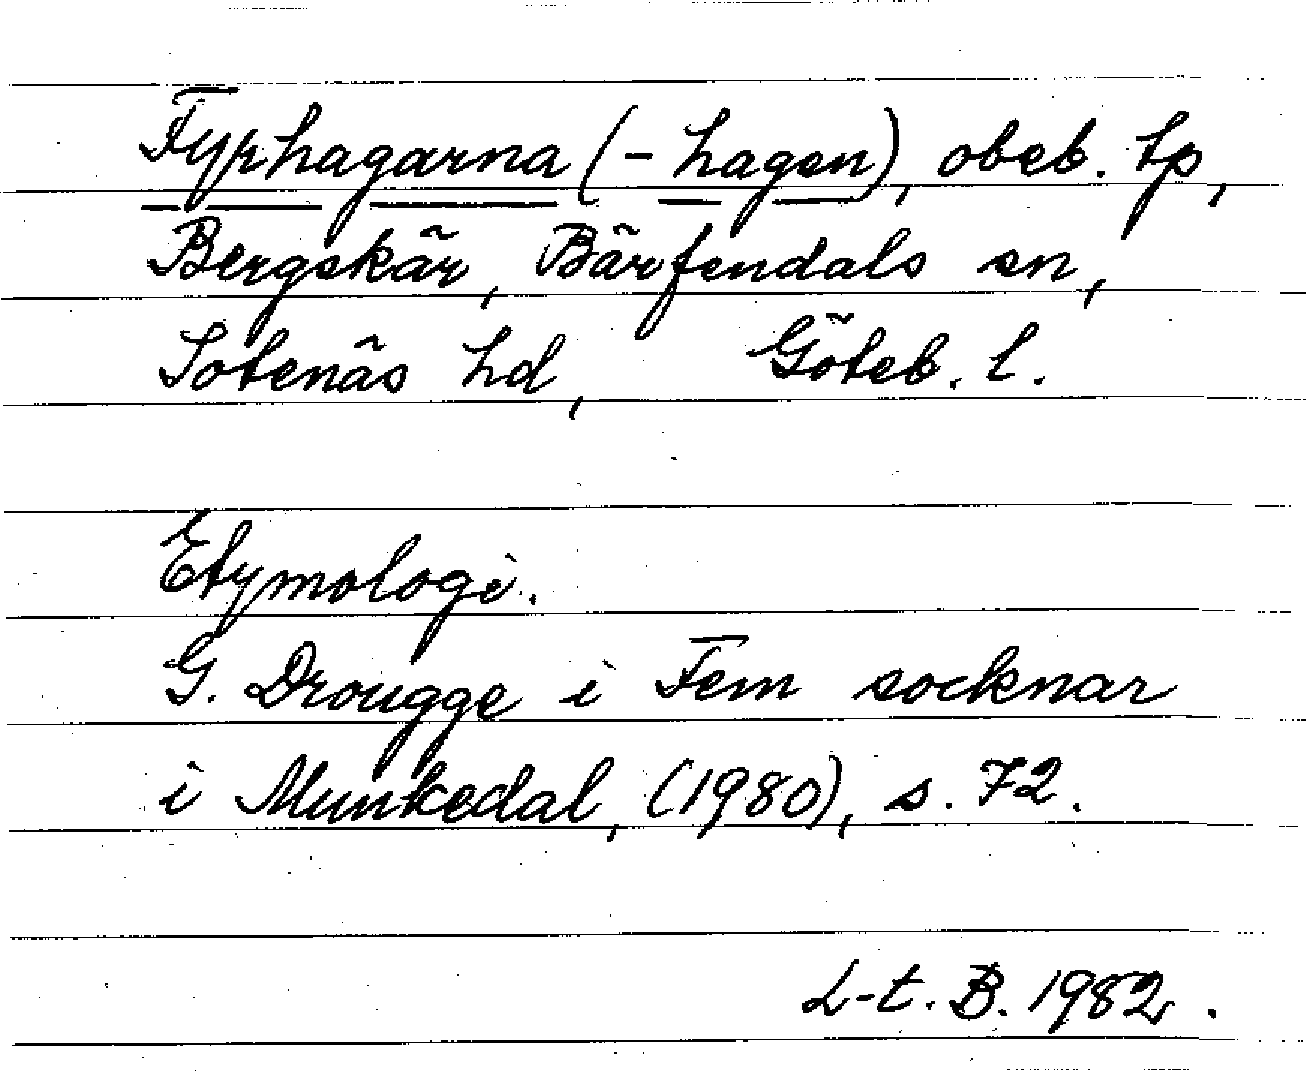 Fyrhagarna (-hagen), obeb. lp,
Bergskär, Bärfendals sn,
Sotenäs hd, Göteb. l.
Etymologi.
G. Drougge i Fem socknar
i Munkedal, (1980), s. 72.
L-t. B. 1982.